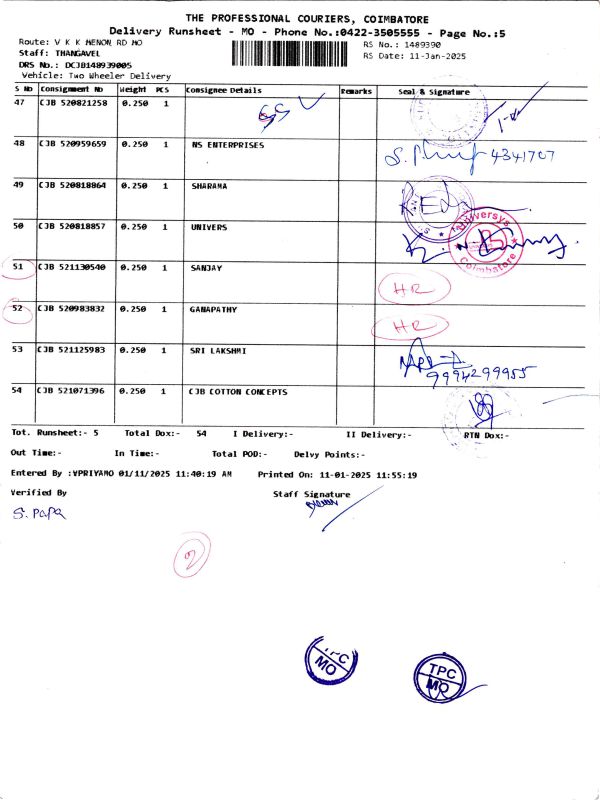 THE PROFESSIONAL COURIERS, COIMBATORE
Delivery Runsheet - MO - Phone No.:0422-3505555 - Page No.:5
Route: V K K MENON RD MO RS No.: 1489390
Staff: THANGAVEL RS Date: 11-Jan-2025
DRS No.: DCJB148939005
Vehicle: Two Wheeler Delivery
S No Consignment No Weight PCS Consignee Details Remarks Seal & Signature
47 CJB 520821258 0.250 1
48 CJB 520959659 0.250 1 NS ENTERPRISES 4341707
49 CJB 520818864 0.250 1 SHARAMA
50 CJB 520818857 0.250 1 UNIVERS Universys Coimbatore
51 CJB 521130540 0.250 1 SANJAY HR
52 CJB 520983832 0.250 1 GANAPATHY HR
53 CJB 521125983 0.250 1 SRI LAKSHMI 9994299955
54 CJB 521071396 0.250 1 CJB COTTON CONCEPTS
Tot. Runsheet:- 5 Total Dox:- 54 I Delivery:- II Delivery:- RTN Dox:-
Out Time:- In Time:- Total POD:- Delvy Points:-
Entered By :VPRIYAMO 01/11/2025 11:40:19 AM Printed On: 11-01-2025 11:55:19
Verified By Staff Signature
S. PAPA
2
TPC MO
TPC MO